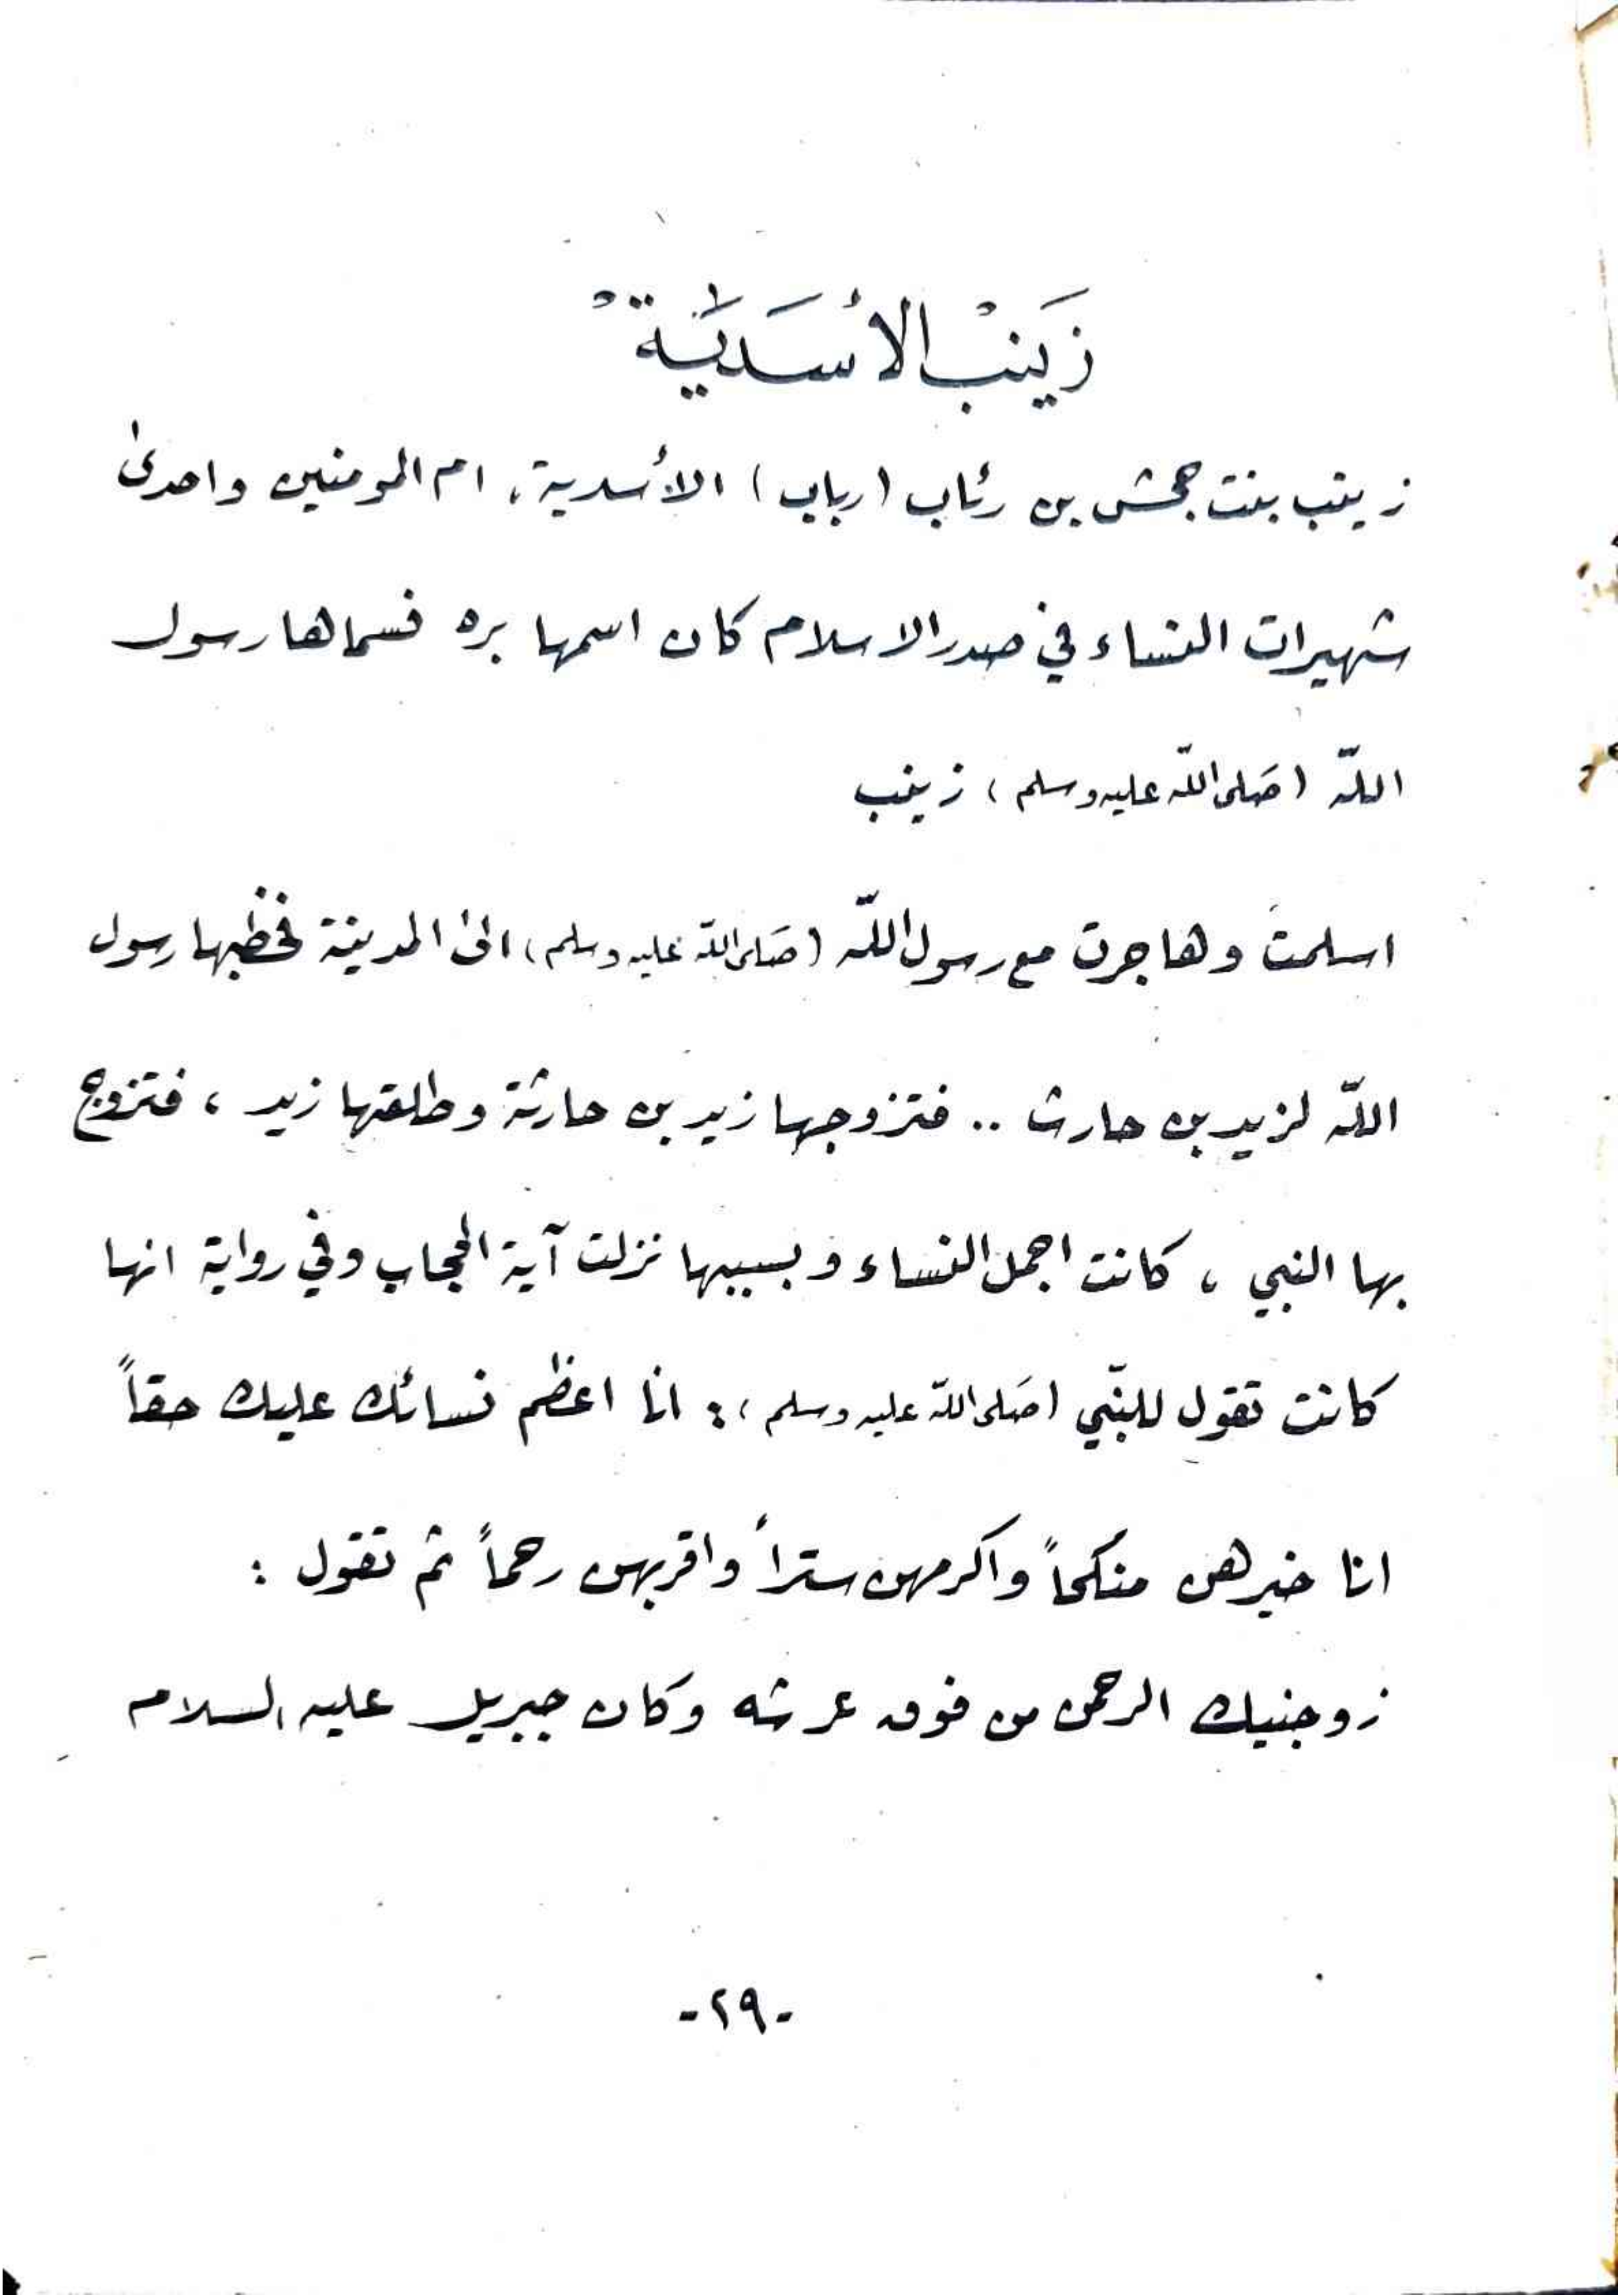 زَينَبْ الأسَدَيَّة
زينب بنت جحش بن رئاب (رباب) الأسدية، ام المومنين واحدى
شهيرات النساء في صدر الاسلام كان اسمها بره فسماها رسول
اللّه (صَلى اللّه عليه وسلم) زينب
اسلمتَ وهاجرت مع رسول اللّه (صَلى اللّه عليه وسلم) الى المدينة فخطبها رسول
اللّه لزيد بن حارث .. فتزوجها زيد بن حارثة وطلقها زيد ، فتزوج
بها النبي ، كانت اجمل النساء وبسببها نزلت آية الحجاب وفي رواية انها
كانت تقول للنبّي (صَلى اللّه عليه وسلم): انا اعظم نسائك عليك حقاً
انا خيرهن منكحاً واكرمهن ستراً واقربهن رحماً ثم تقول :
زوجنيك الرحمن من فوق عرشه وكان جبريل عليه السلام
-٢٩-